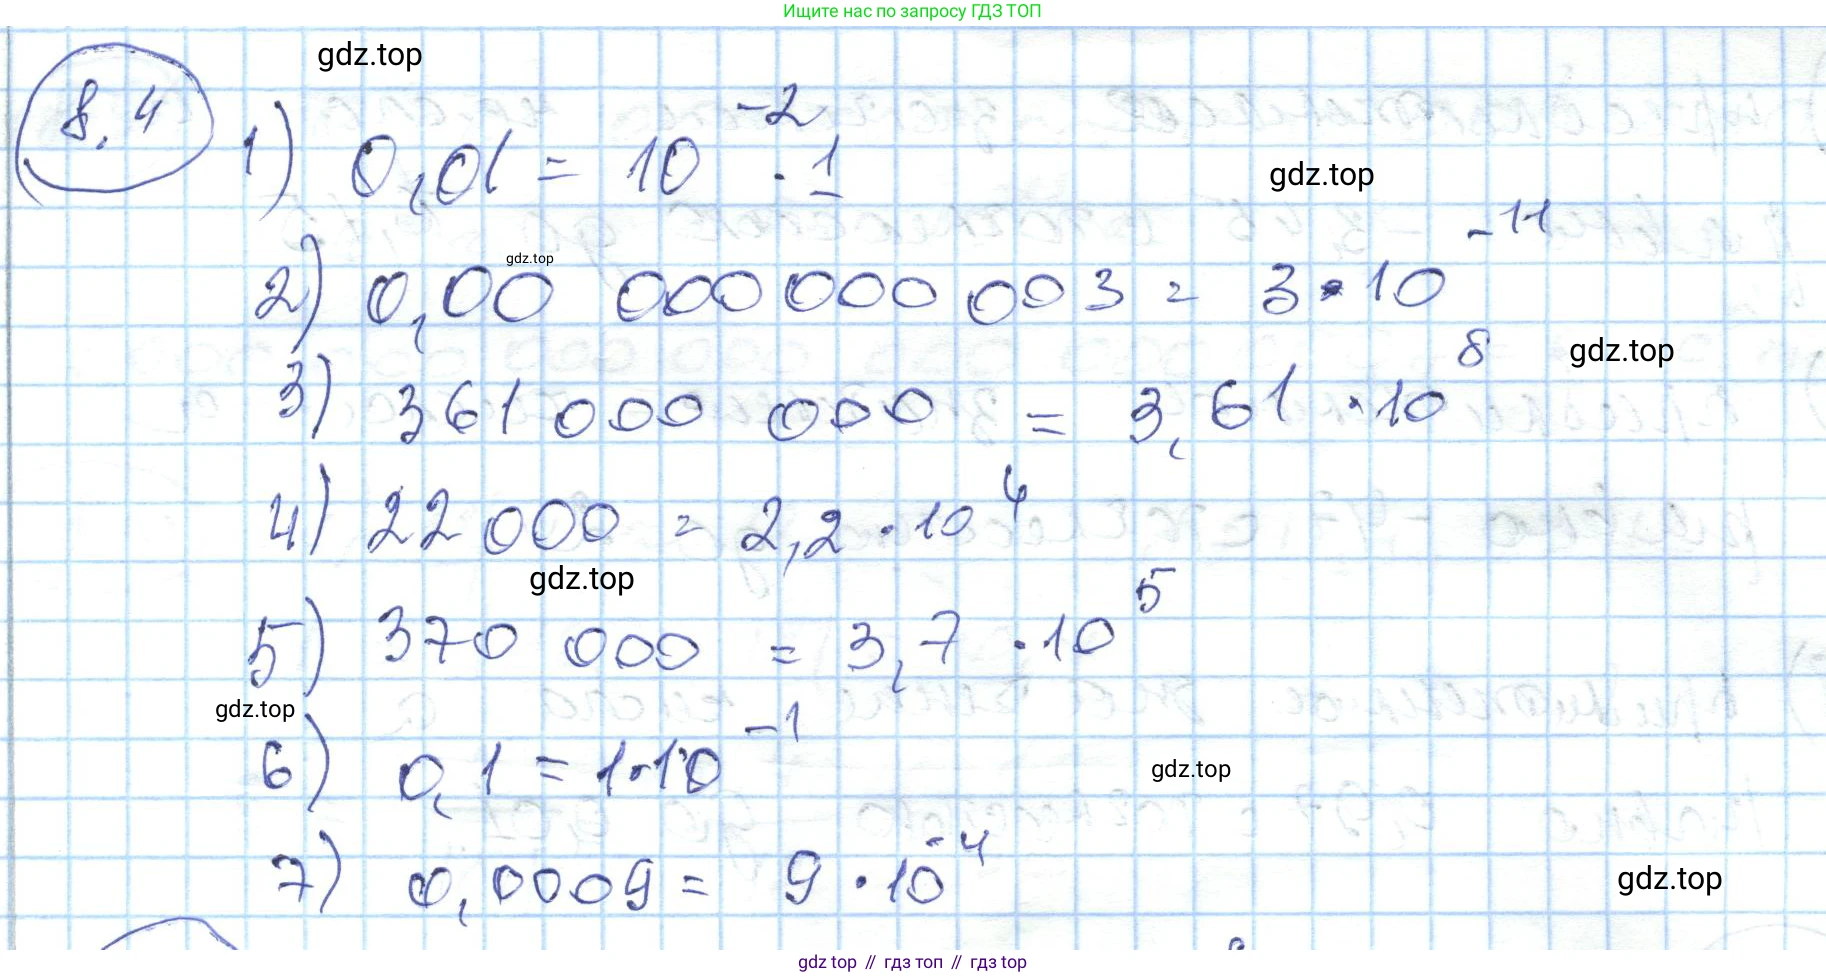 Ищите нас по запросу ГДЗ ТОП
gdz.top
8.4
1) 0,01 = 10⁻² · 1
gdz.top
gdz.top
2) 0,00 000 000 003 = 3 · 10⁻¹¹
gdz.top
3) 361 000 000 = 3,61 · 10⁸
4) 22 000 = 2,2 · 10⁴
gdz.top
5) 370 000 = 3,7 · 10⁵
gdz.top
6) 0,1 = 1 · 10⁻¹
gdz.top
7) 0,0009 = 9 · 10⁻⁴
gdz.top
gdz top // гдз топ // гдз top